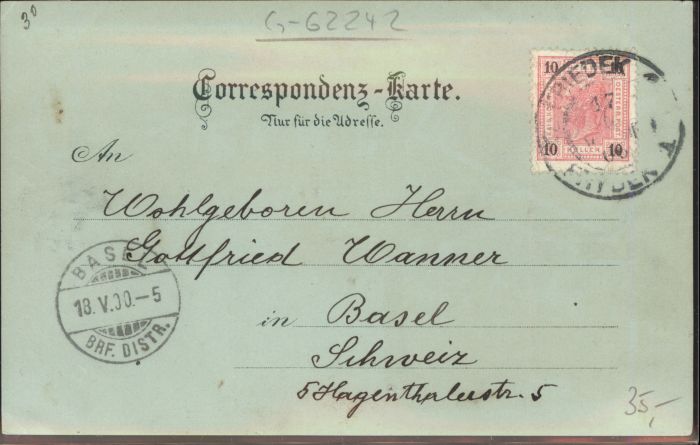 30
G-62242
Correspondenz-Karte.
Nur für die Adresse.
An
Wohlgeboren Herrn
Gottfried Wanner
in Basel
Schweiz
5 Hagenthalerstr. 5
35,-
10 10
OESTERR. POST
10 HELLER 10
FRIEDEK
17
BASEL
18.V.00.-5
BRF. DISTR.